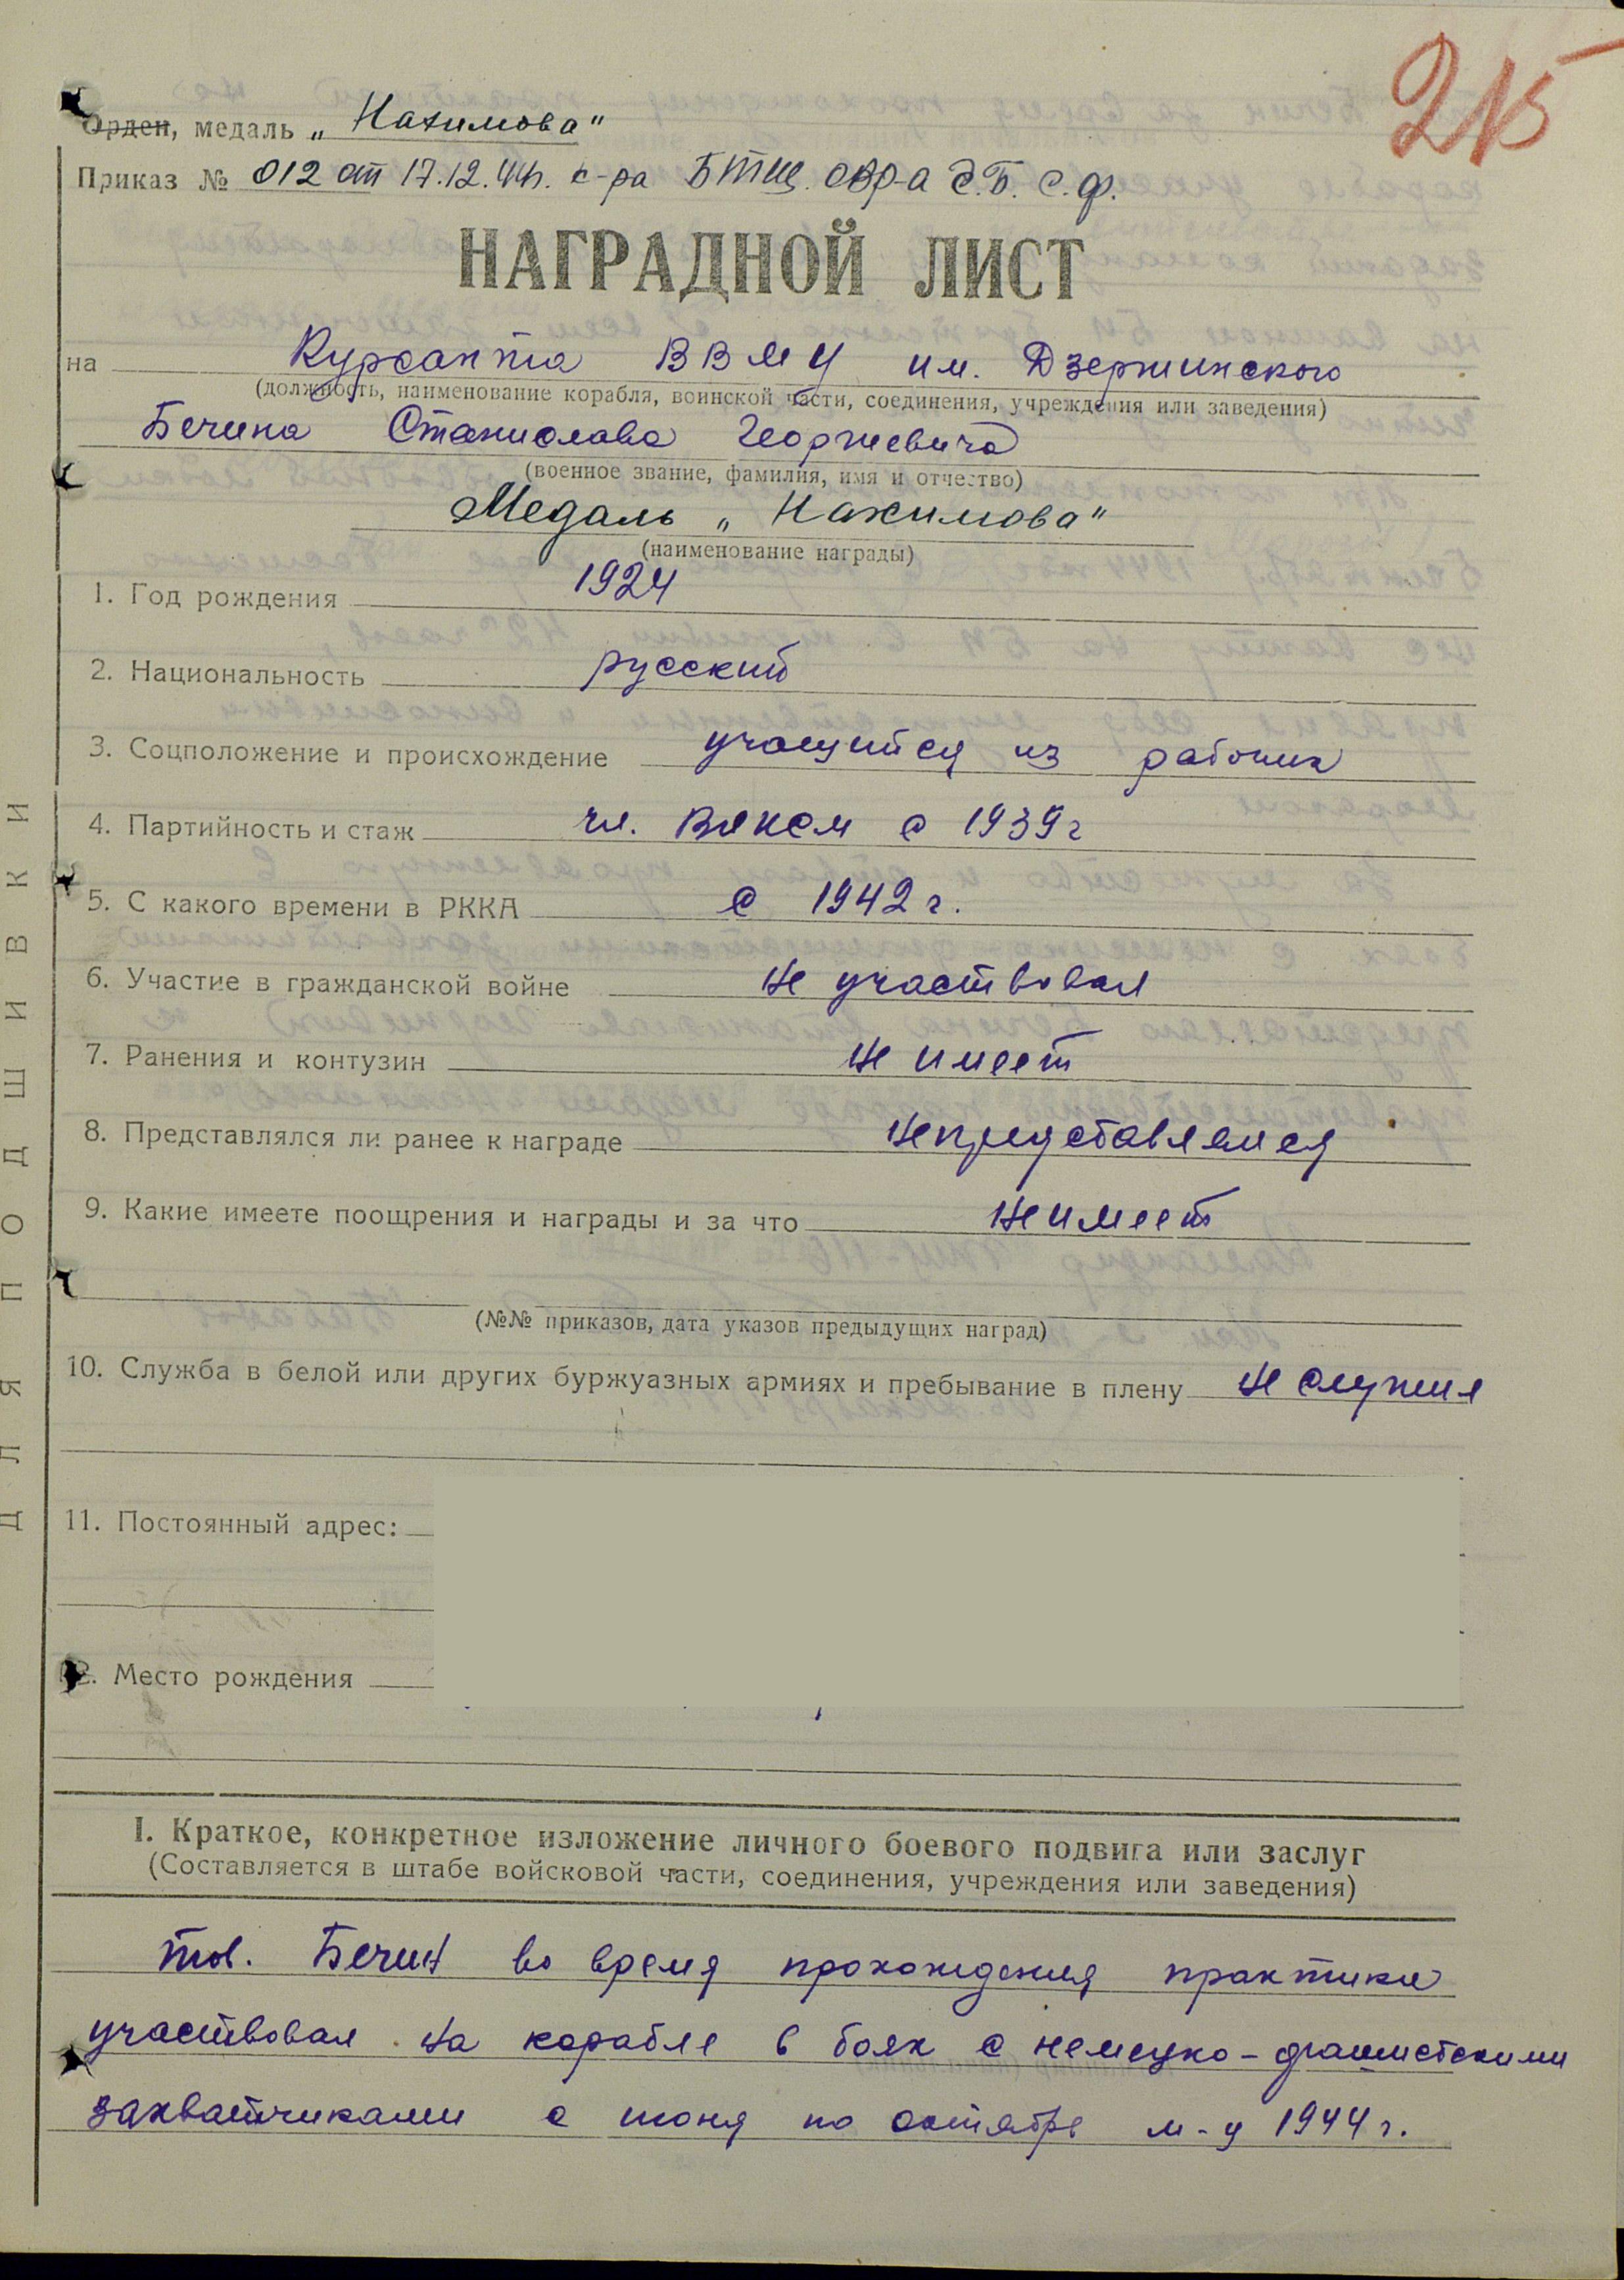 215
Орден, медаль „Нахимова“
Приказ № 012 от 17.12.44г. к-ра БТЩ. ОВР-а С.Ф.
НАГРАДНОЙ ЛИСТ
на Курсанта ВВМУ им. Дзержинского
(должность, наименование корабля, воинской части, соединения, учреждения или заведения)
Бечина Станислава Георгиевича
(военное звание, фамилия, имя и отчество)
Медаль „Нахимова“
(наименование награды)
1. Год рождения 1924
2. Национальность русский
3. Соцположение и происхождение учащийся из рабочих
4. Партийность и стаж чл. ВЛКСМ с 1939 г
5. С какого времени в РККА с 1942 г.
6. Участие в гражданской войне не участвовал
7. Ранения и контузии не имеет
8. Представлялся ли ранее к награде не представлялся
9. Какие имеете поощрения и награды и за что не имеет
(№№ приказов, дата указов предыдущих наград)
10. Служба в белой или других буржуазных армиях и пребывание в плену не служил
11. Постоянный адрес:
12. Место рождения
I. Краткое, конкретное изложение личного боевого подвига или заслуг
(Составляется в штабе войсковой части, соединения, учреждения или заведения)
тов. Бечин во время прохождения практики
участвовал на корабле в боях с немецко-фашистскими
захватчиками с июня по октябрь м-ц 1944 г.
ДЛЯ ПОДШИВКИ